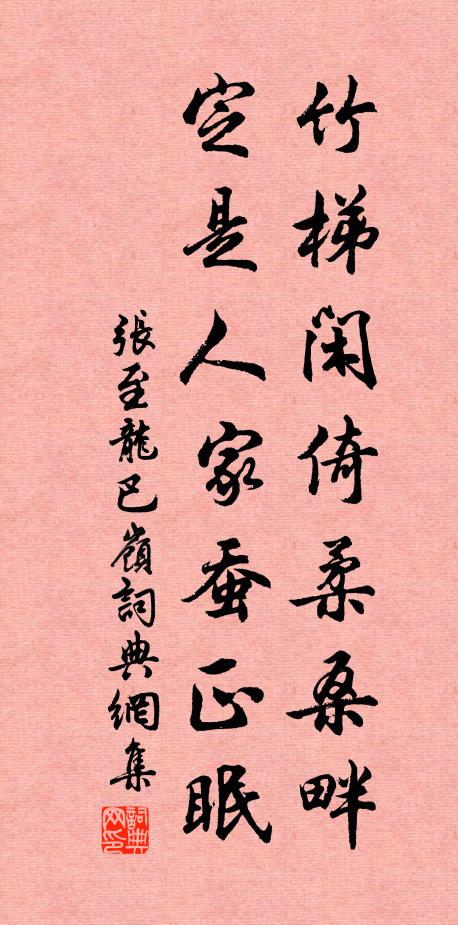 竹梯闲倚柔桑畔
定是人家蚕正眠
張至龍巴嶺詞典網集
詞典网印